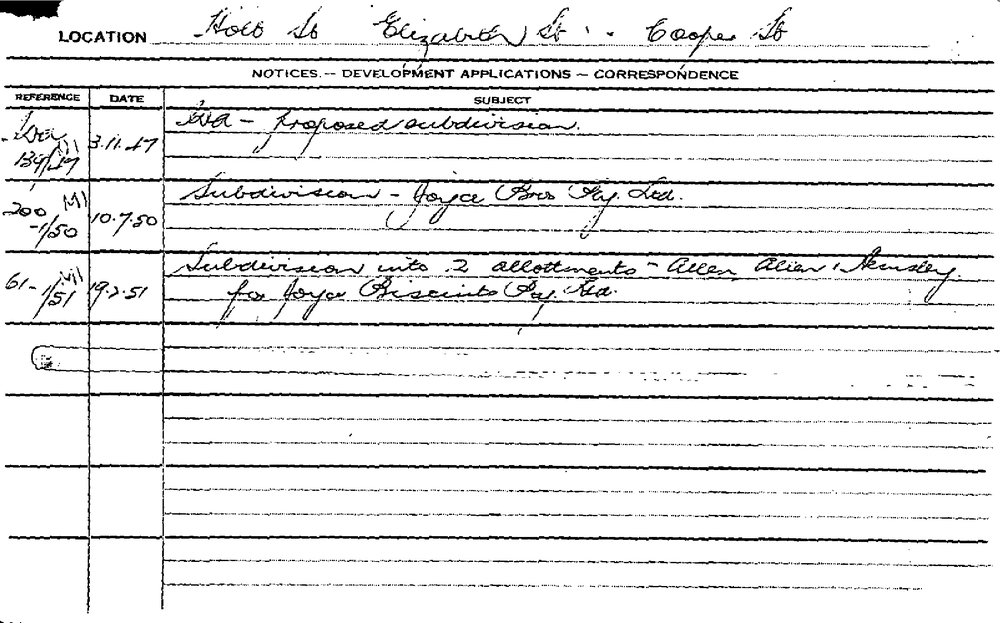 LOCATION Holt St Elizabeth St Cooper St
NOTICES. – DEVELOPMENT APPLICATIONS – CORRESPONDENCE
REFERENCE DATE SUBJECT
3.11.47 – proposed subdivision.
139/47
200 M1 -1/50 10.7.50 Subdivision – Joyce Bros Pty. Ltd.
61- 1/51 19.2.51 Subdivision into 2 allottments – Allen Allen &
for Joyce Biscuits Pty. Ltd.